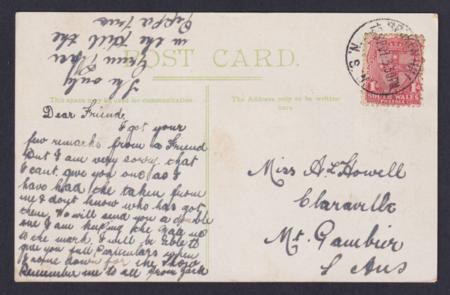 POST CARD.
This space may be used for communication
The Address only to be written
here
Dear Friende,
I got your
few remarks from a Friend
But I am very sorry that
I cant give you one as I
have had the taken from
me & dont know who has got
them. We will send you a double
one I am keeping the gag up
to the mark. I will be able to
give you full particulars when
I come down for the Show
Remember me to all from Jack
The only
in the
Miss A L Howell
Claraville
Mt. Gambier
S Aus
SOUTH WALES
POSTAGE
N.S.W